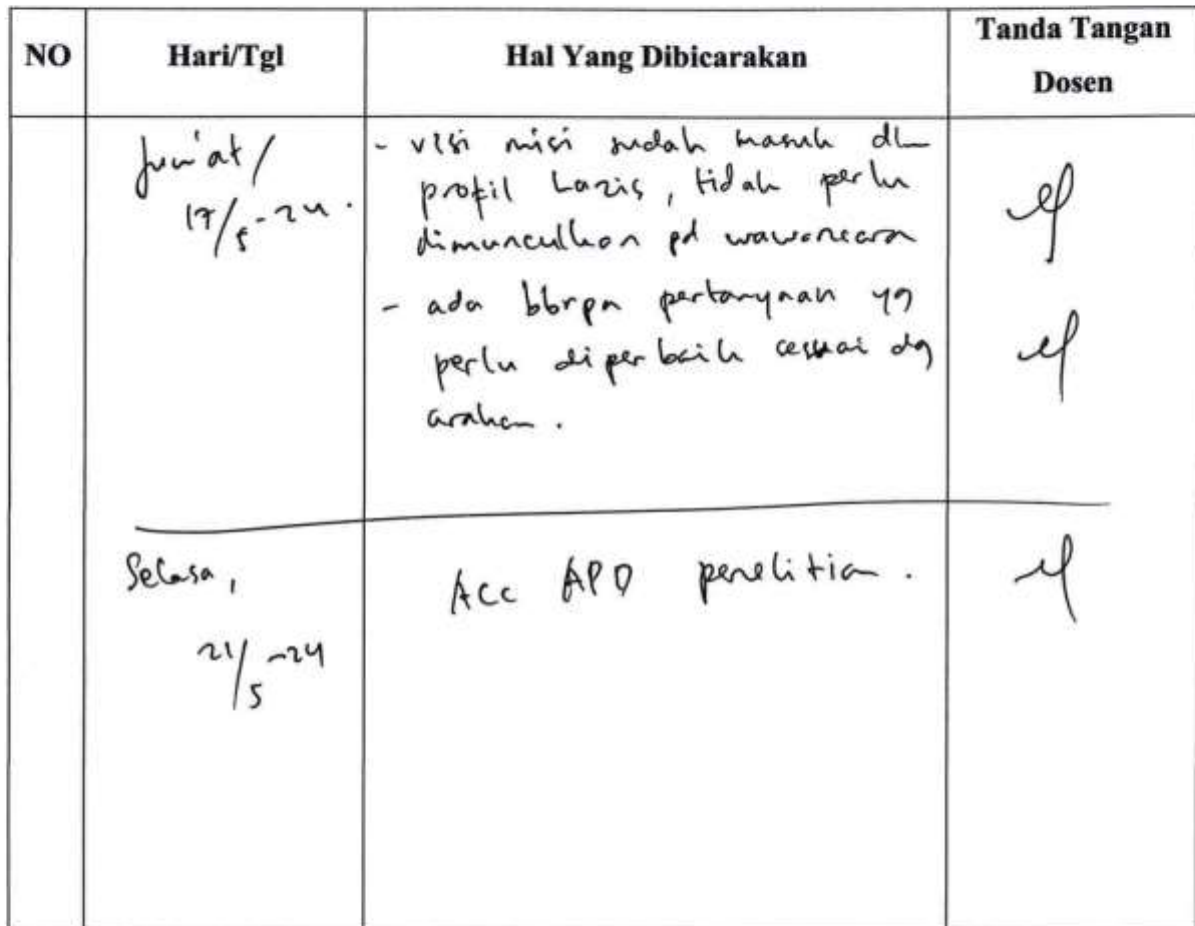 NO Hari/Tgl Hal Yang Dibicarakan Tanda Tangan
Dosen
Jum'at/
17/5-24.
- visi misi sudah masuk dlm
profil Lazis, tidak perlu
dimunculkan pd wawancara
- ada bbrpa pertanyaan yg
perlu diperbaiki sesuai dg
arahan.
Selasa,
21/5-24
Acc APD penelitian.